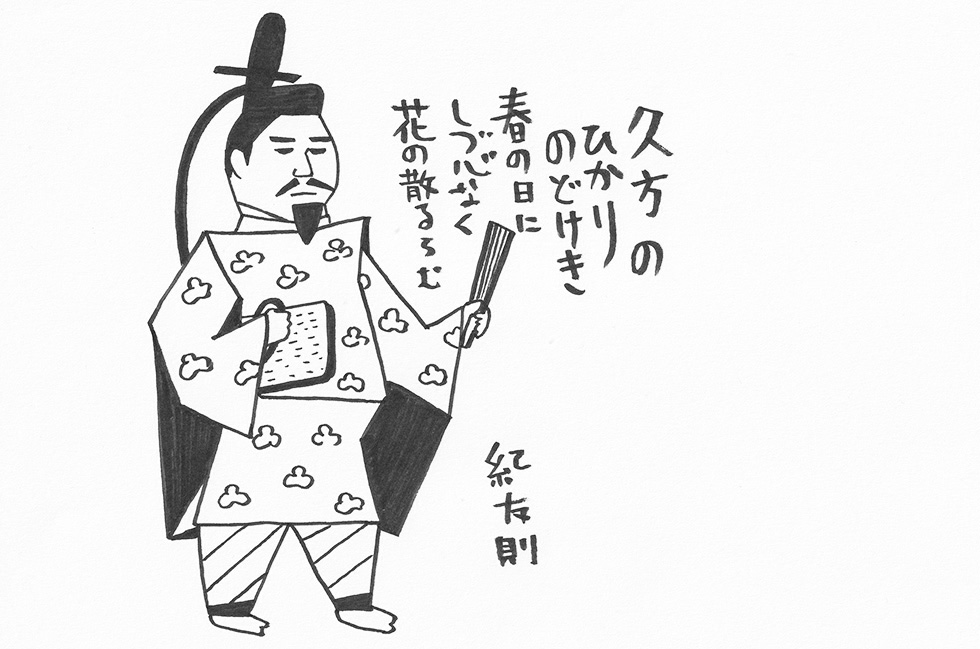 久方の
ひかり
のどけき
春の日に
しづ心なく
花の散るらむ
紀友則